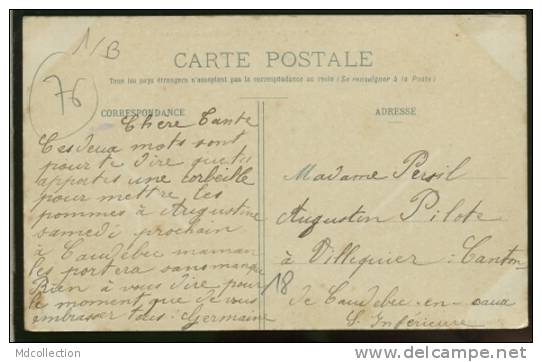 1/B
76
CARTE POSTALE
Tous les pays étrangers n'acceptent pas la correspondance au recto (Se renseigner à la Poste)
CORRESPONDANCE
ADRESSE
Chère Tante
Ces deux mots sont
pour te dire que tu
apportes une corbeille
pour mettre les
pommes à Augustine
samedi prochain
à Caudebec maman
les portera sans manque
Rien à vous dire pour
le moment que de vous
embrasser tous : Germaine
Madame Persil
Augustin Pilote
à Villequier : Canton
de Caudebec-en-caux
S. Inférieure
18
Mdcollection
www.delcampe.net